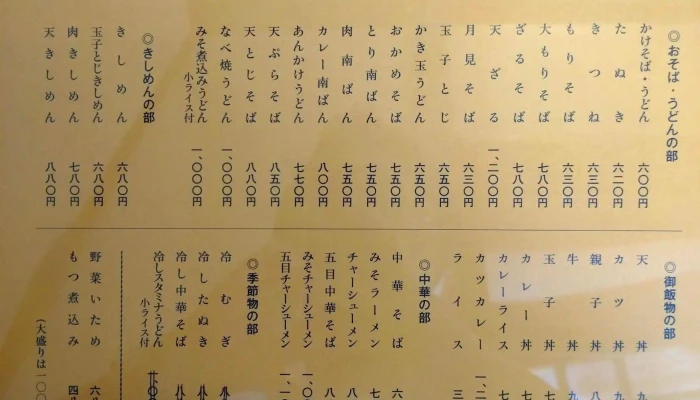 ◎おそば・うどんの部
かけそば・うどん 六〇〇円
たぬき 六二〇円
きつね 六三〇円
もりそば 六三〇円
大もりそば 七八〇円
ざるそば 七八〇円
天ざる 一、二〇〇円
月見そば 六三〇円
玉子とじ 六五〇円
かき玉うどん 六五〇円
おかめそば 七五〇円
とり南ばん 七五〇円
肉南ばん 七五〇円
カレー南ばん 八〇〇円
あんかけうどん 七七〇円
天ぷらそば 八五〇円
天とじそば 八八〇円
なべ焼うどん 一、〇〇〇円
みそ煮込みうどん 一、〇〇〇円
小ライス付
◎きしめんの部
きしめん 六八〇円
玉子とじきしめん 六八〇円
肉きしめん 七八〇円
天きしめん 八八〇円
◎御飯物の部
天丼 九
カツ丼 九
親子丼 八
牛丼 九
玉子丼 七
カレー丼 七
カレーライス 七
カツカレー 一、二
ライス 三
◎中華の部
中華そば 六
みそラーメン 七
チャーシューメン 八
五目中華そば 八
みそチャーシューメン 一、〇
五目チャーシューメン 一、一
◎季節物の部
冷むぎ
冷したぬき
冷し中華そば
冷しスタミナうどん
小ライス付
野菜いため 六
もつ煮込み 四
（大盛りは一〇